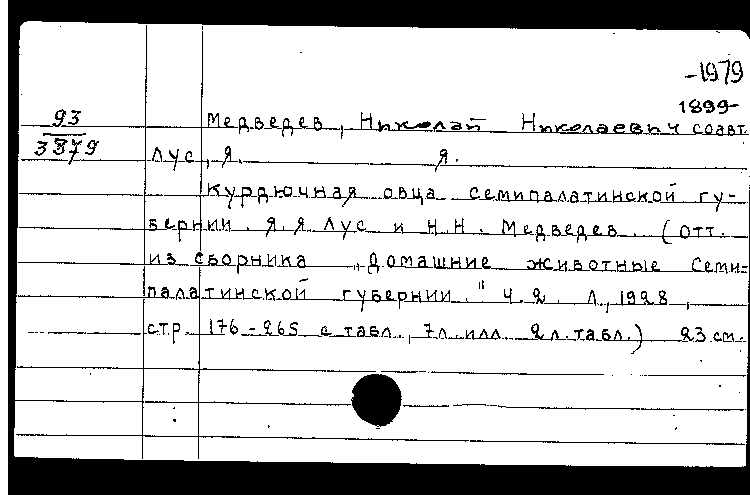 -1979
1899-
93
3879
Медведев, Николай Николаевич соавт.
Лус, Я. Я.
Курдючная овца семипалатинской гу-
бернии. Я. Я Лус и Н. Н. Медведев. (отт.
из сборника „Домашние животные Семи-
палатинской губернии." ч. 2. Л., 1928,
стр. 176-265 с табл., 7 л. илл. 2 л. табл.) 23 см.